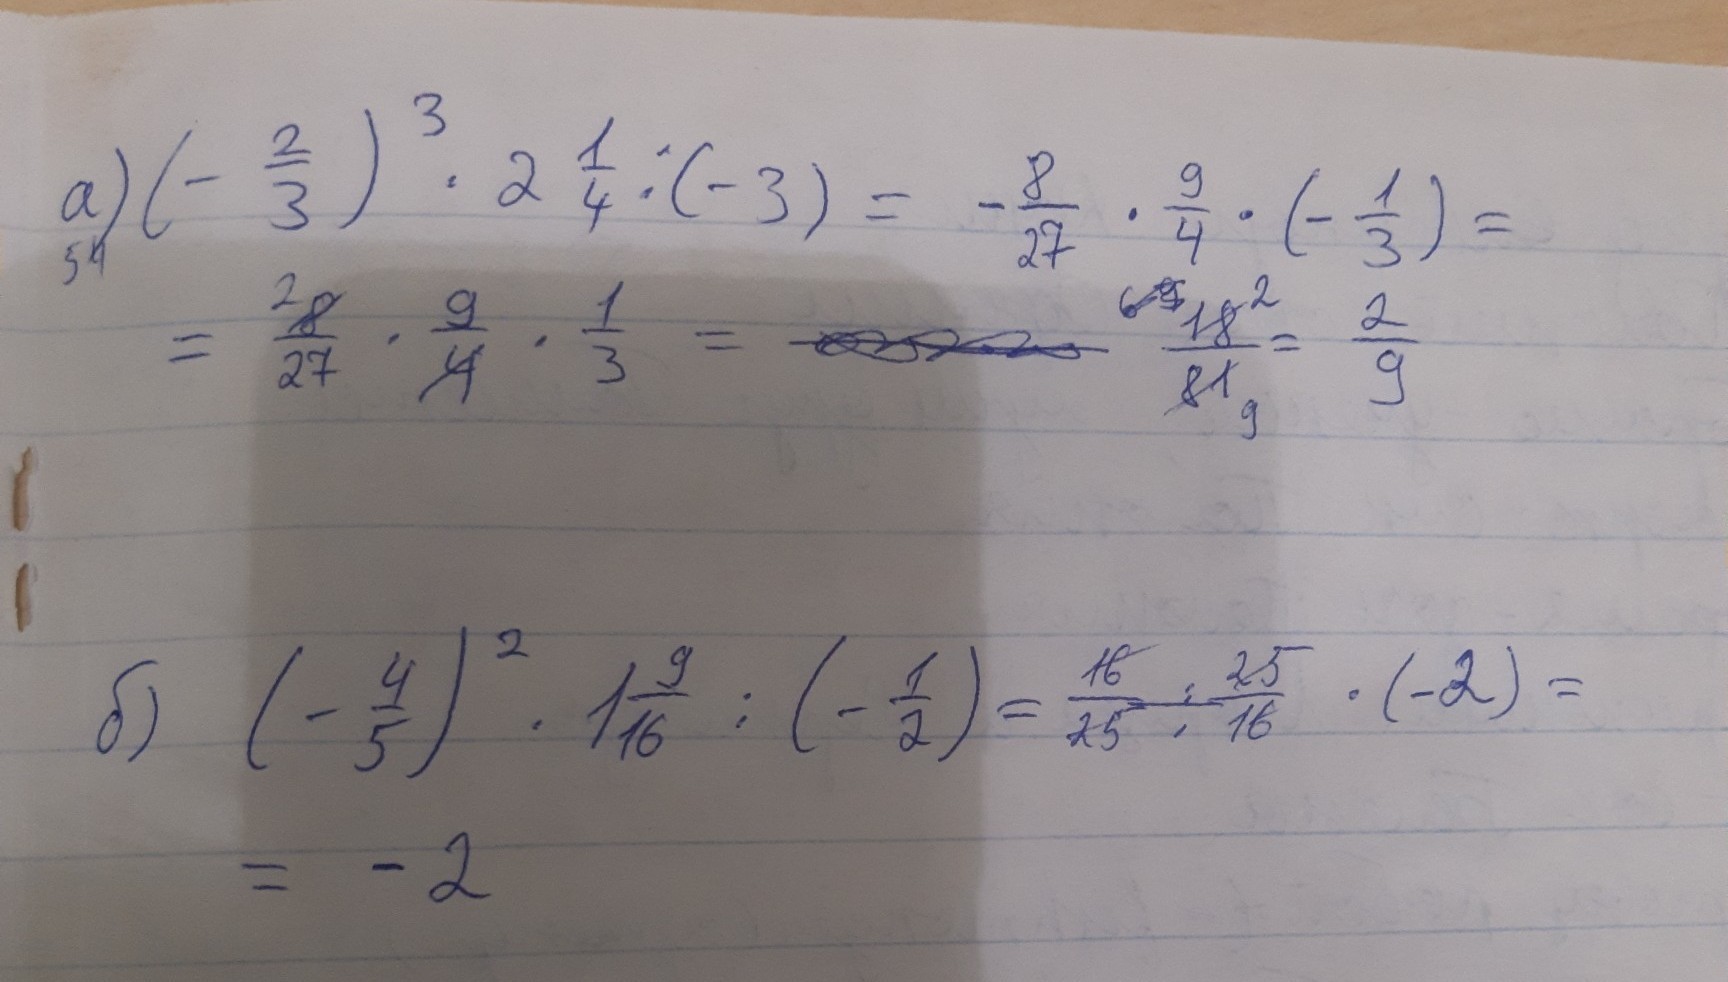 а) (- 2/3)^3 · 2 1/4 : (-3) = - 8/27 · 9/4 · (- 1/3) =
54
= 8/27 · 9/4 · 1/3 = 18/81 = 2/9
б) (- 4/5)^2 · 1 9/16 : (- 1/2) = 16/25 · 25/16 · (-2) =
= -2